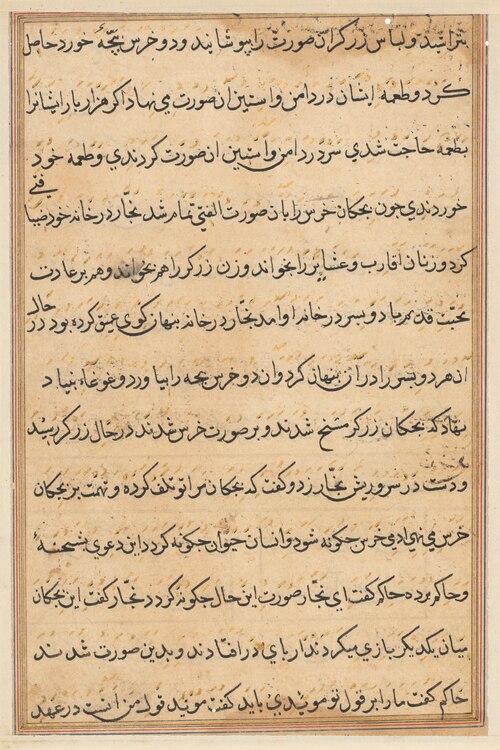 بتراشید و لباس زرکر ان صورت را بپوشانید و دو خرس بچّهٔ خورد حاصل
کرد و طعمه ایشان در دامن و استین ان صورت می نهاد اکر هزار بار ایشانرا
بطعمه حاجت شدی سر در دامن و استین ان صورت کردندی و طعمه خود
خوردندی جون بجکان خرس را بان صورت الفتی تمام شد نجّار در خانه خود ضیافتی
کرد و زنان اقارب و عشایر را بخواند و زن زرکر را هم بخواند و هم بر عادت
محبّت قدیم با دو پسر در خانه او امد نجّار در خانه پنهان کوی عمیق کرده بود در حال
ان هر دو پسر را در ان پنهان کرد و ان دو خرس بچه را بیاورد و غوغاء بنیاد
نهاد که بجکان زرکر مسخ شدند و بر صورت خرس شدند در حال زرکر رسید
و دست در سر و ریش نجّار زد و کفت که بجکان مرا تو تلف کرده و تهمت بر بجکان
خرس می نهی ادمی خرس جکونه شود و انسان حیوان جکونه کردد این دعوی بشحنهٔ
و حاکم برده حاکم کفت ای نجّار صورت این حال جکونه کردد نجّار کفت این بجکان
میان یکدیکر بازی میکردند از پای در افتادند و بدین صورت شدند
حاکم کفت ما را بر قول تو مویدی باید کفت موید قول من انست در عهد